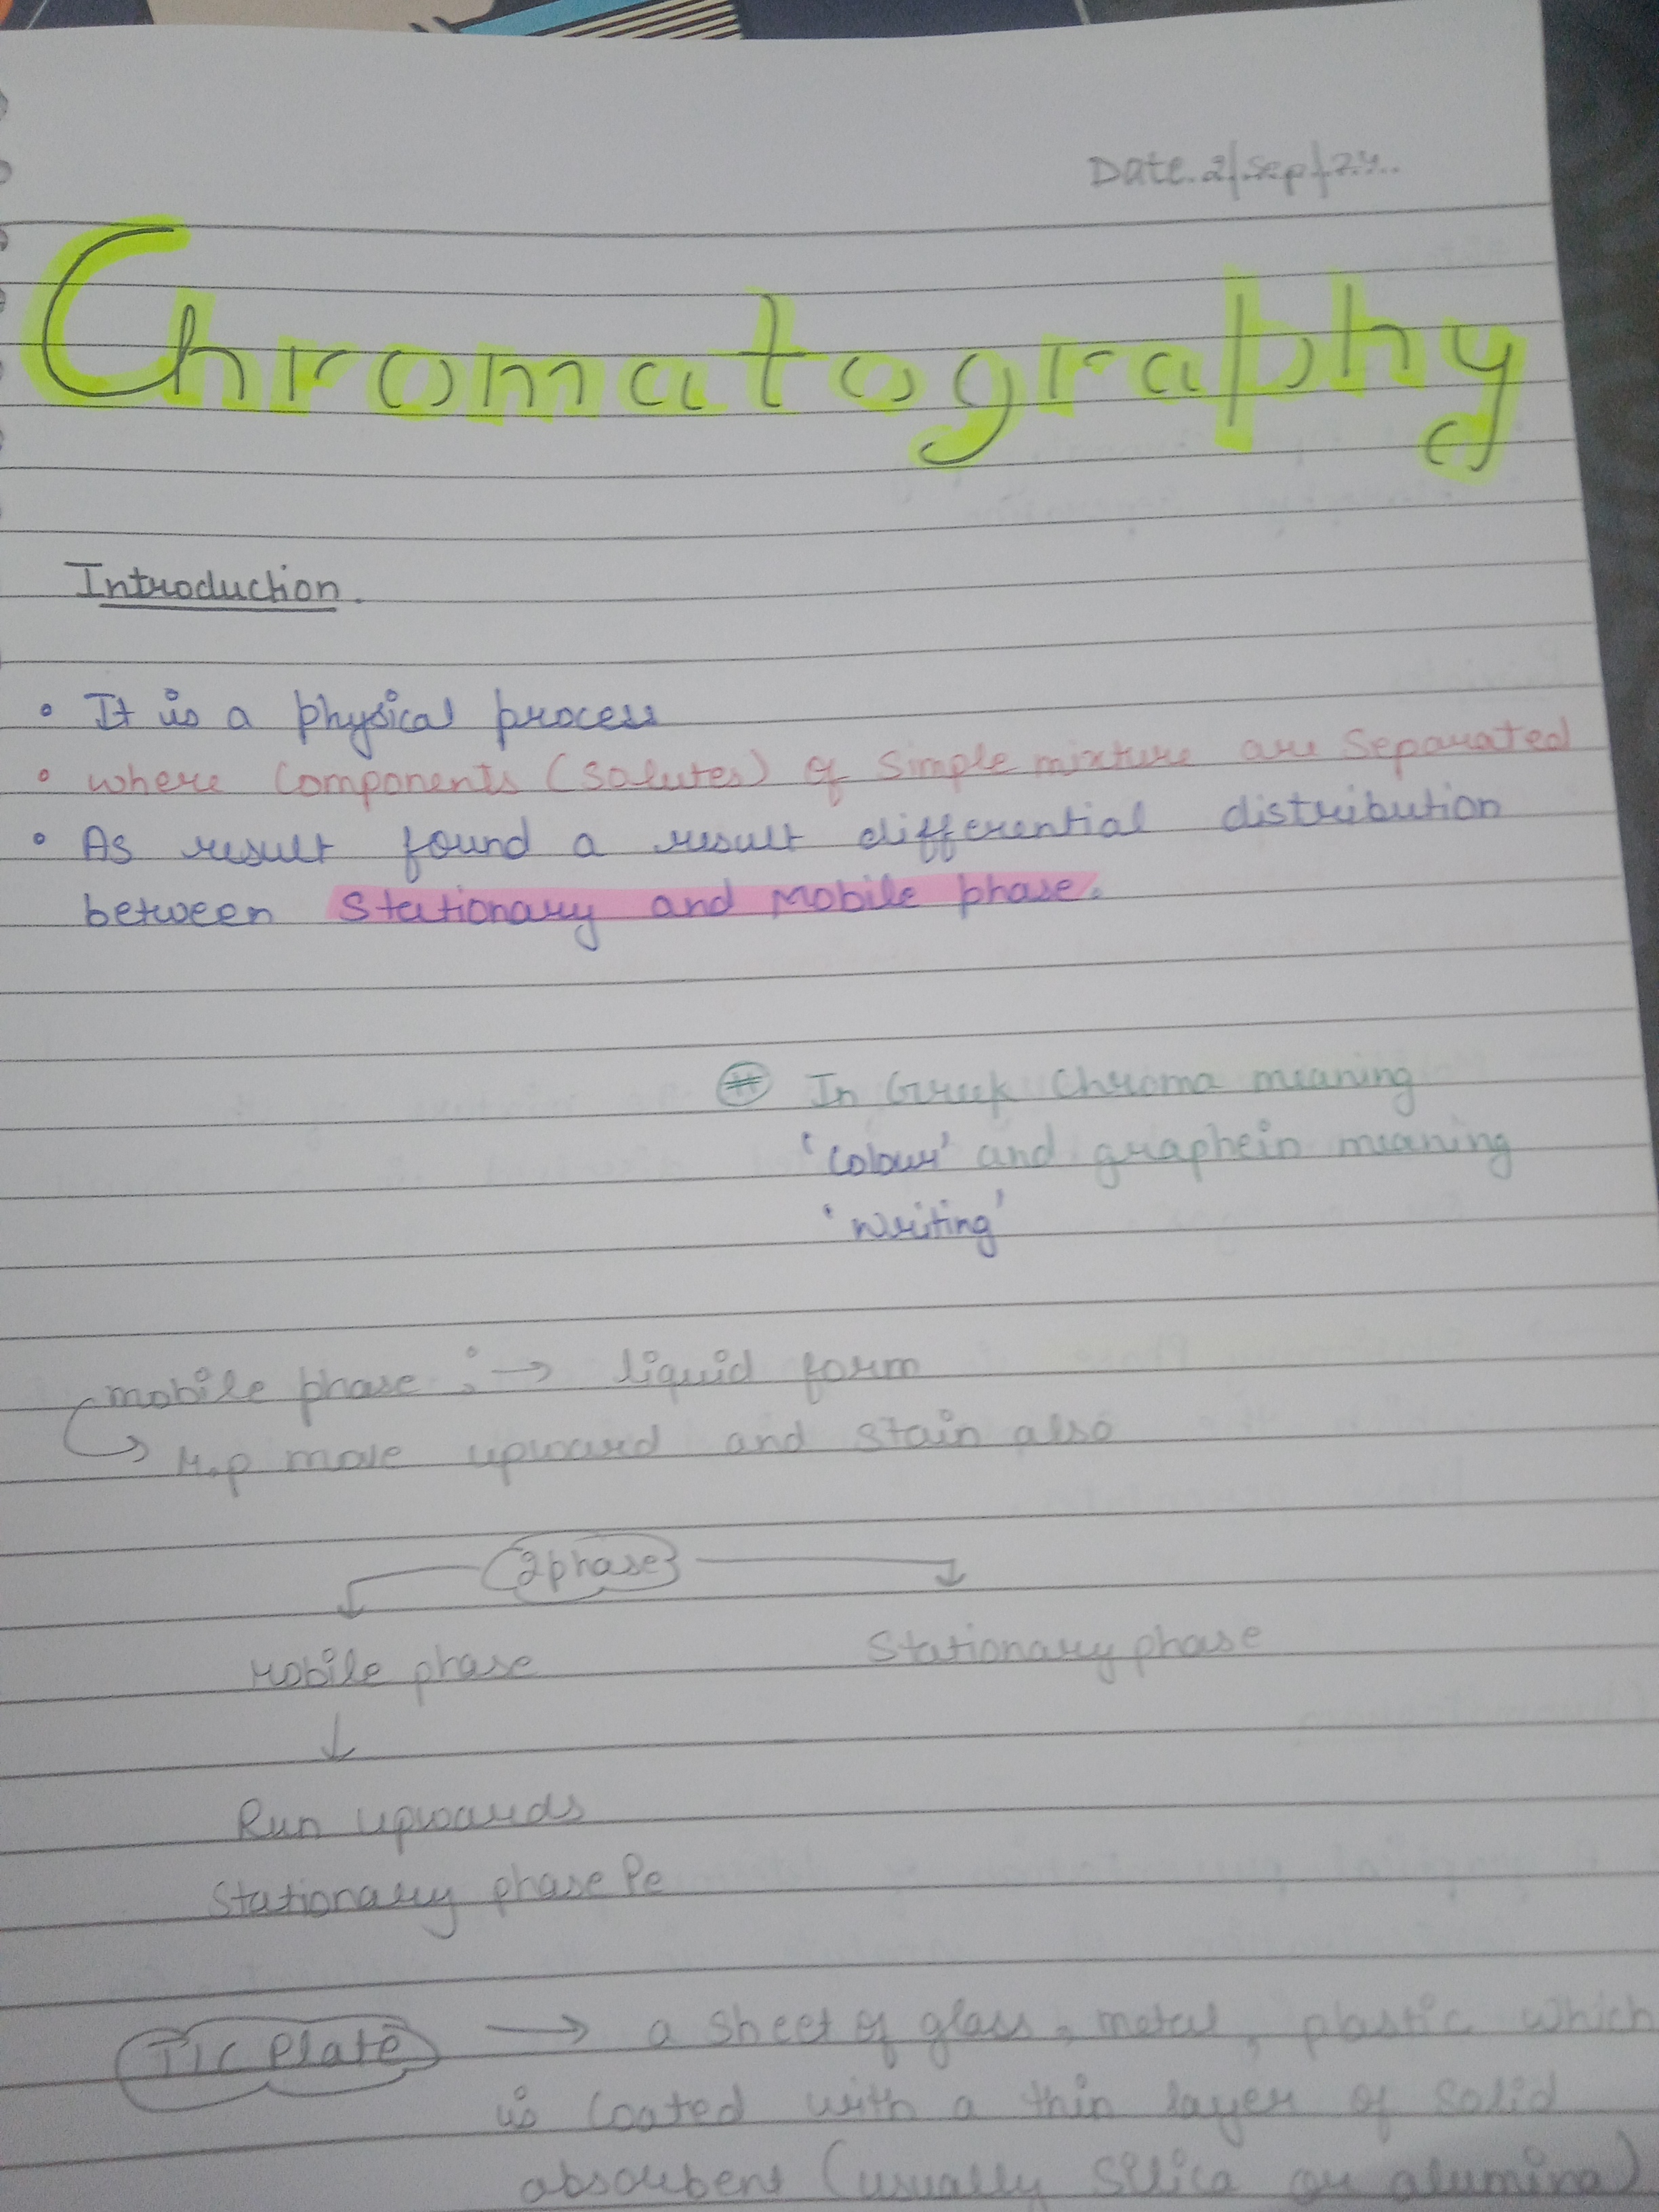 Date. 2/Sep/24..
Chromatography
Introduction.
• It is a physical process
• where Components (Solutes) of Simple mixture are Separated
• As result found a result differential distribution
between Stationary and Mobile phase.
# In Greek Chroma meaning
'Colour' and graphein meaning
'writing'
mobile phase :→ liquid form
↳ M.p move upward and stain also
2 phase
Mobile phase
Stationary phase
↓
Run upwards
Stationary phase Pe
TLC Plate → a sheet of glass, metal, plastic which
is Coated with a thin layer of solid
absorbent (usually Silica or alumina)